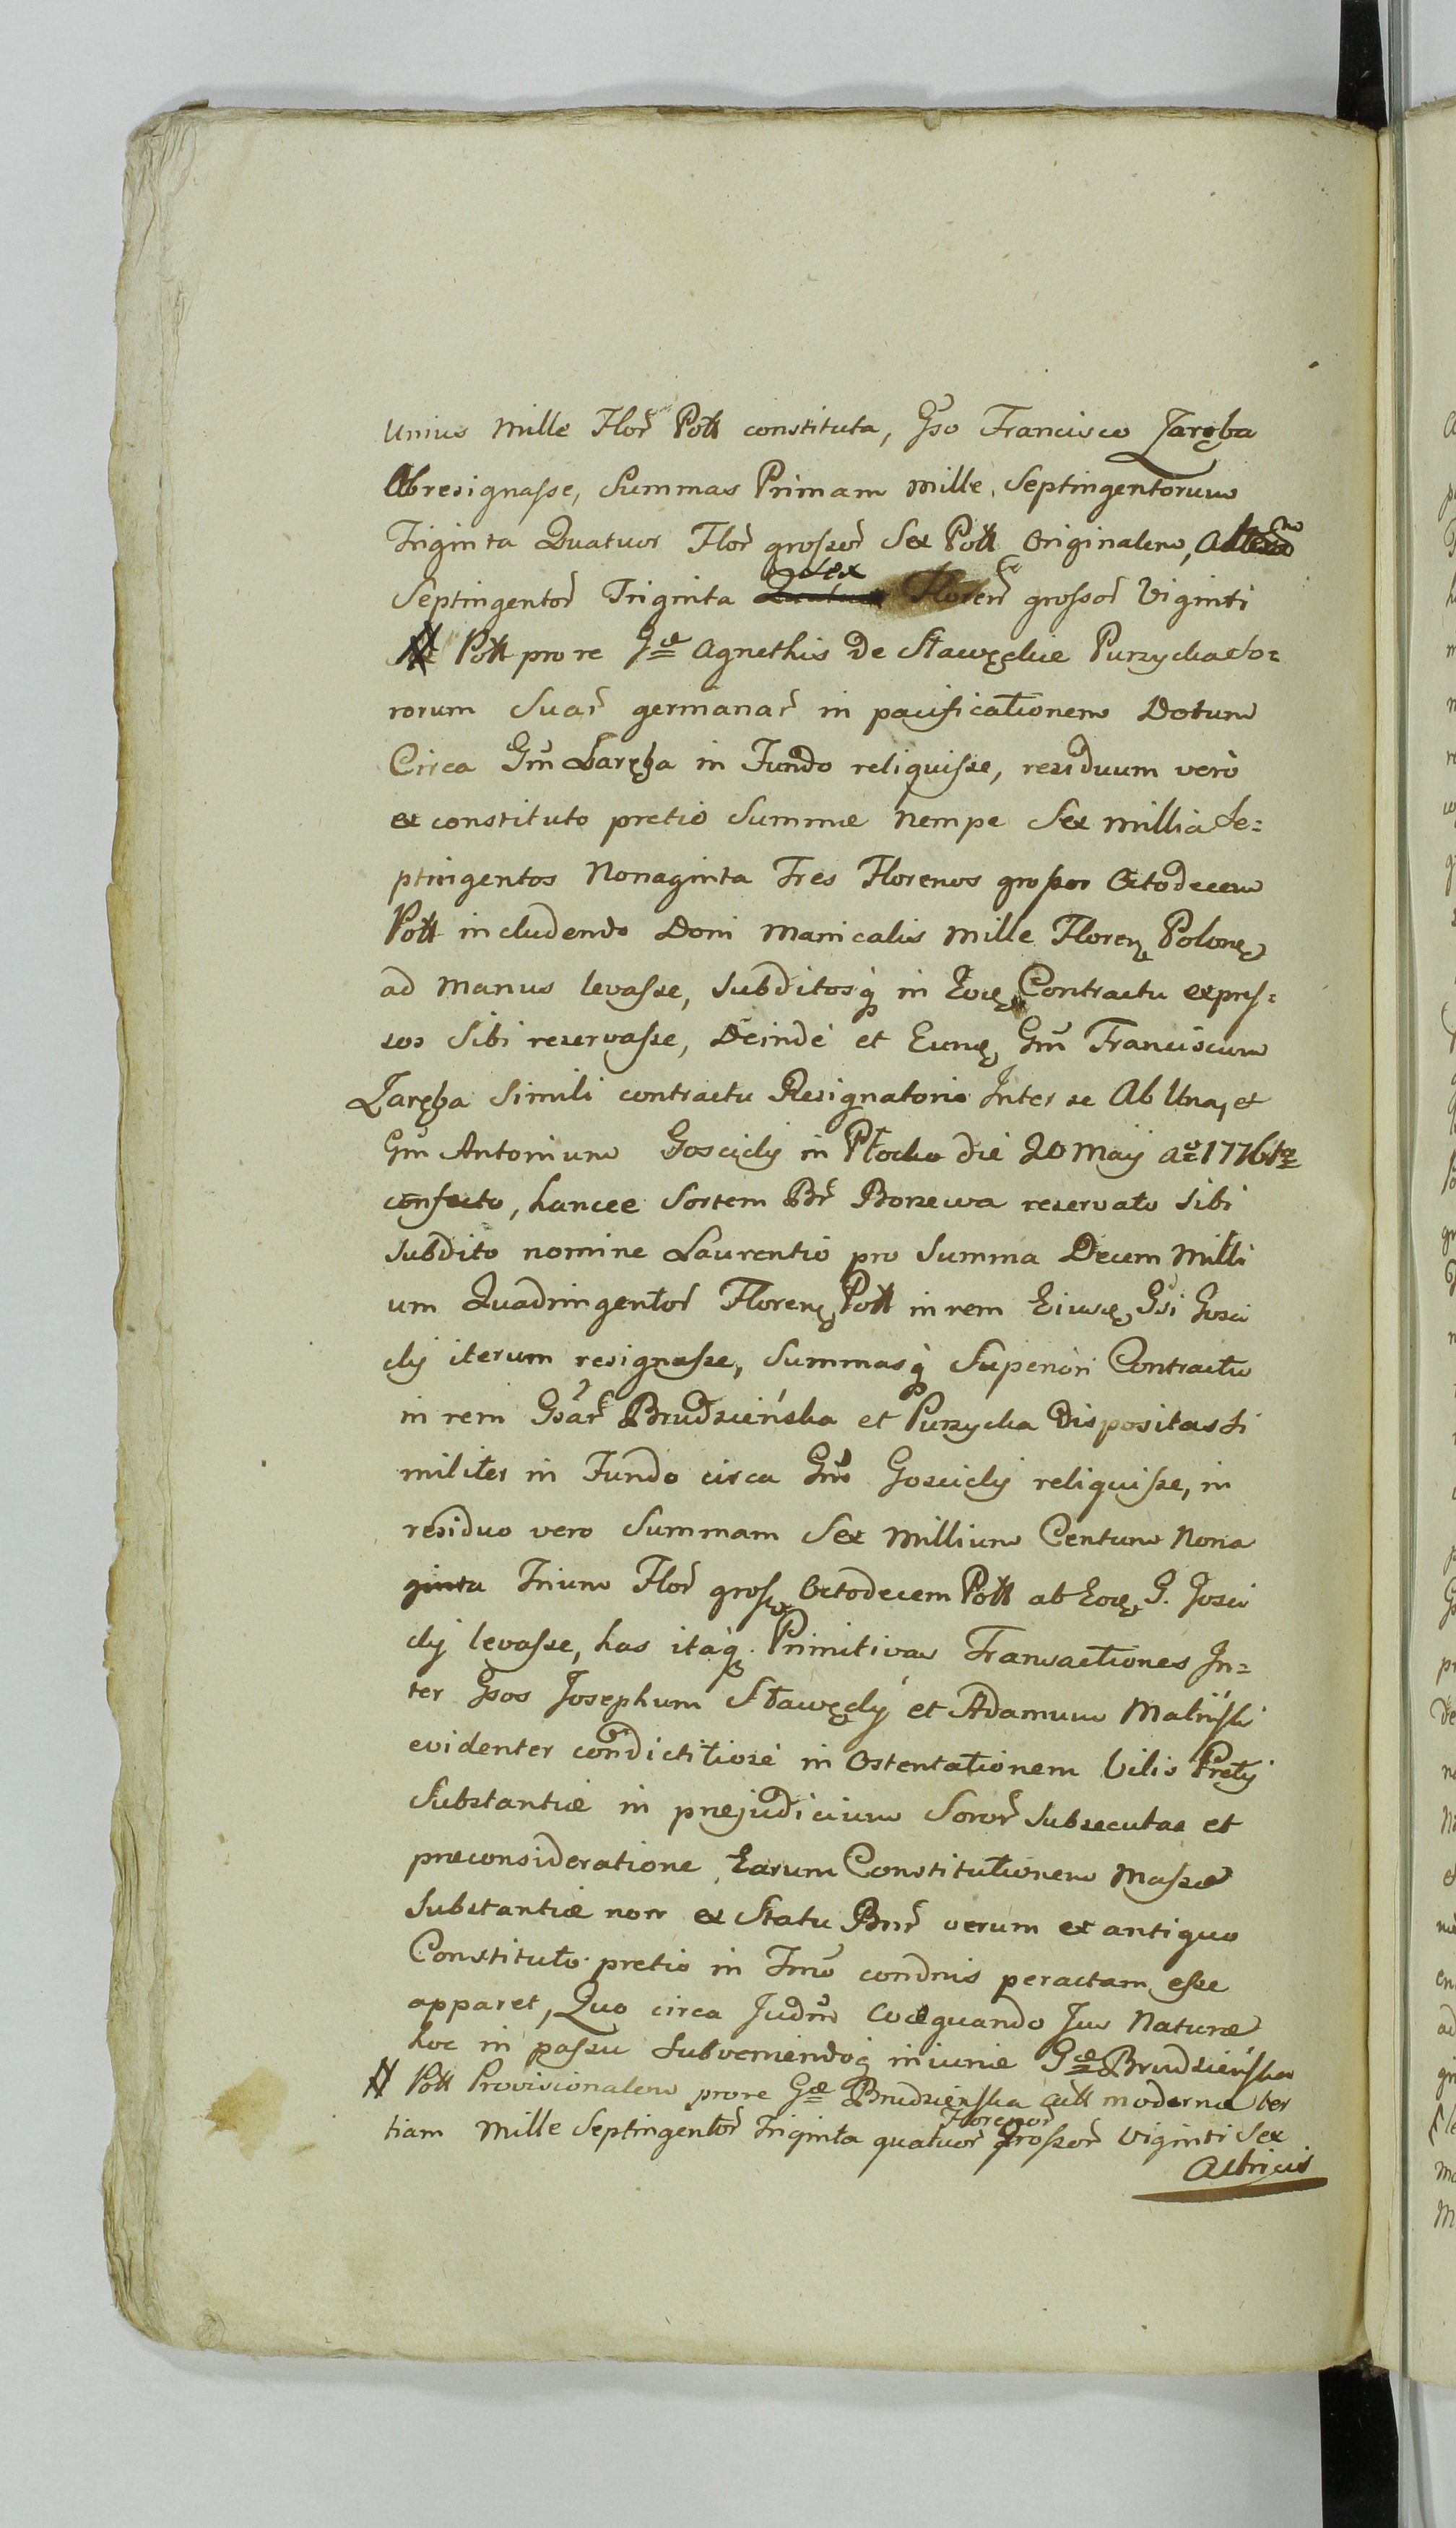 unius mille Flor Poll constituta, Gso Francisco Zaręba
Abresignasse, Summas Primam mille Septingentorum
Triginta Quatuor Flor grossor Sex Poll Originalem,
Septingentor Triginta Sex Floren grossor Viginti
Poll pro re Gæ Agnethis de Sławęckie Purzycka So=
rorum Suar germanar in pacificationem Dotum
Circa Gm Zaręba in Fundo reliquisse, residuum verò
ex constituto pretio Summæ nempe Sex millia Se=
ptingentos Nonaginta Tres Florenos grossos Octodecem
Poll includendo Doni Manicalis mille Floren Polon
ad Manus levasse, Subditosq in Eod Contractu expres=
sos Sibi reservasse, Deinde et Eund Gm Franciscum
Zaręba Simili contractu Resignatorio Inter se Ab Una, et
Gm Antonium Goscicky in Płocko die 20 Maÿ Ao 1776to
confecto, hancce Sortem Br Borzewa reservato Sibi
Subdito nomine Laurentio pro Summa Decem Milli
um Quadringentor Floren Poll in rem Eiusd Gsi Gosci
cky iterum resignasse, Summasq Superiori Contractu
in rem Gsar Brudzieńska et Purzycka Dispositas Si
militer in Fundo circa Gm Goscicky reliquisse, in
residuo vero Summam Sex Millium Centum Nona
ginta Trium Flor gross Octodecem Poll ab Eod G. Gosci
cky levasse, has itaq Primitivas Transactiones In=
ter Gsos Josephum Sławęcky et Adamum Maliński
evidenter condictitiose in Ostentationem Vilis Prety
Substantiæ in præjudicium Soror Subsecutas et
præconsideratione Earum Constitutionem Massæ
Substantiæ non ex Statu Bnr verum ex antiquo
Constituto pretio in Fmo condnis peractam esse
apparet, Quo circa Judm Coæquando Jus Naturæ
hoc in passu Subveniendoq injuriæ Gæ Brudzieńska
Poll Provisionalem prore Gæ Brudzieńska Act modernæ ter
tiam Mille Septingentor Triginta quatuor Florenor Grossor Viginti Sex
Actricis